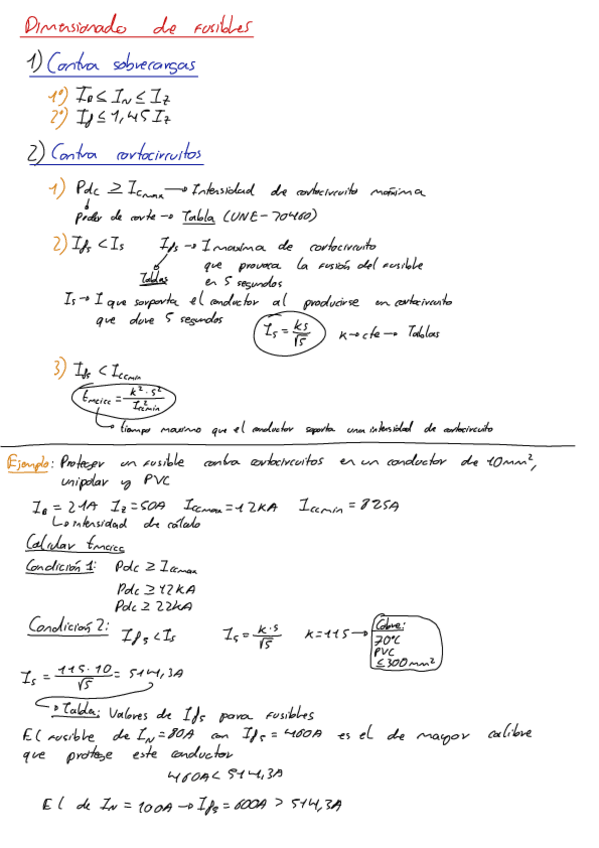 Dimensionado de fusibles
1) Contra sobrecargas
1º) I_B ≤ I_N ≤ I_Z
2º) I_f ≤ 1,45 I_Z
2) Contra cortocircuitos
1) Pdc ≥ I_cmax → Intensidad de cortocircuito máxima
poder de corte → Tabla (UNE-70460)
2) I_f5 < I_s I_f5 → I maxima de cortocircuito
que provoca la fusión del fusible
Tablas en 5 segundos
I_s → I que soporta el conductor al producirse un cortocircuito
que dure 5 segundos I_s = ks/√5 k → cte → Tablas
3) I_f5 < I_ccmin
t_mcicc = k²·s²/I²_ccmin
tiempo maximo que el conductor soporta una intensidad de cortocircuito
Ejemplo: Proteger un fusible contra cortocircuitos en un conductor de 10mm²,
unipolar y PVC
I_B = 21A I_Z = 50A I_ccmax = 12KA I_ccmin = 825A
↳ intensidad de cálculo
Calcular t_mcicc
Condición 1: Pdc ≥ I_ccmax
Pdc ≥ 12KA
Pdc ≥ 22KA
Condición 2: I_f5 < I_s I_s = k·s/√5 K = 115 → Cobre:
70ºC
PVC
≤300mm²
I_s = 115·10/√5 = 514,3A
→ Tabla: Valores de I_f5 para fusibles
El fusible de I_N = 80A con I_f5 = 460A es el de mayor calibre
que protege este conductor
460A < 514,3A
El de I_N = 100A → I_f5 = 600A > 514,3A